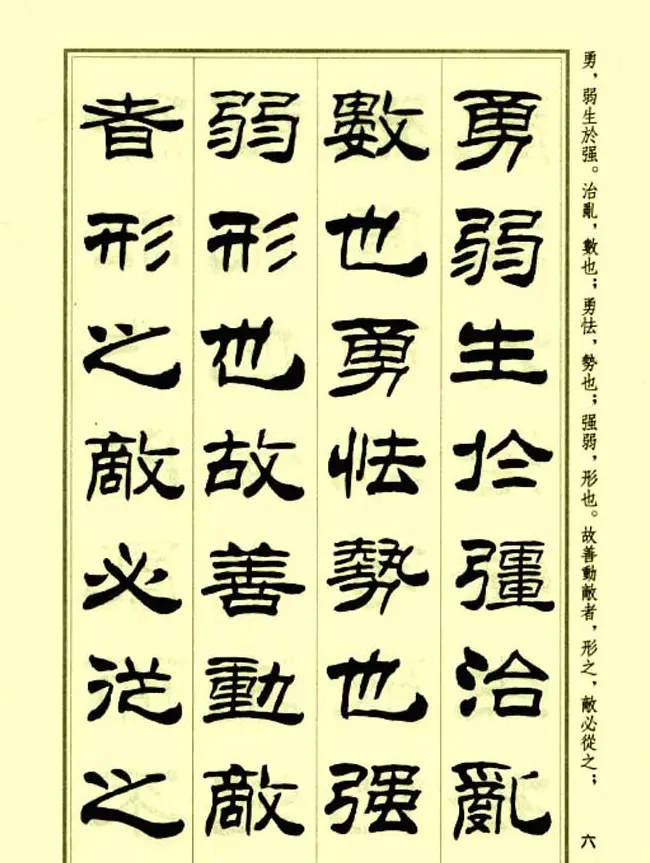 勇，弱生於强。治亂，數也；勇怯，勢也；强弱，形也。故善動敵者，形之，敵必從之；
六
勇弱生於彊治亂
數也勇怯勢也强
弱形也故善動敵
者形之敵必從之